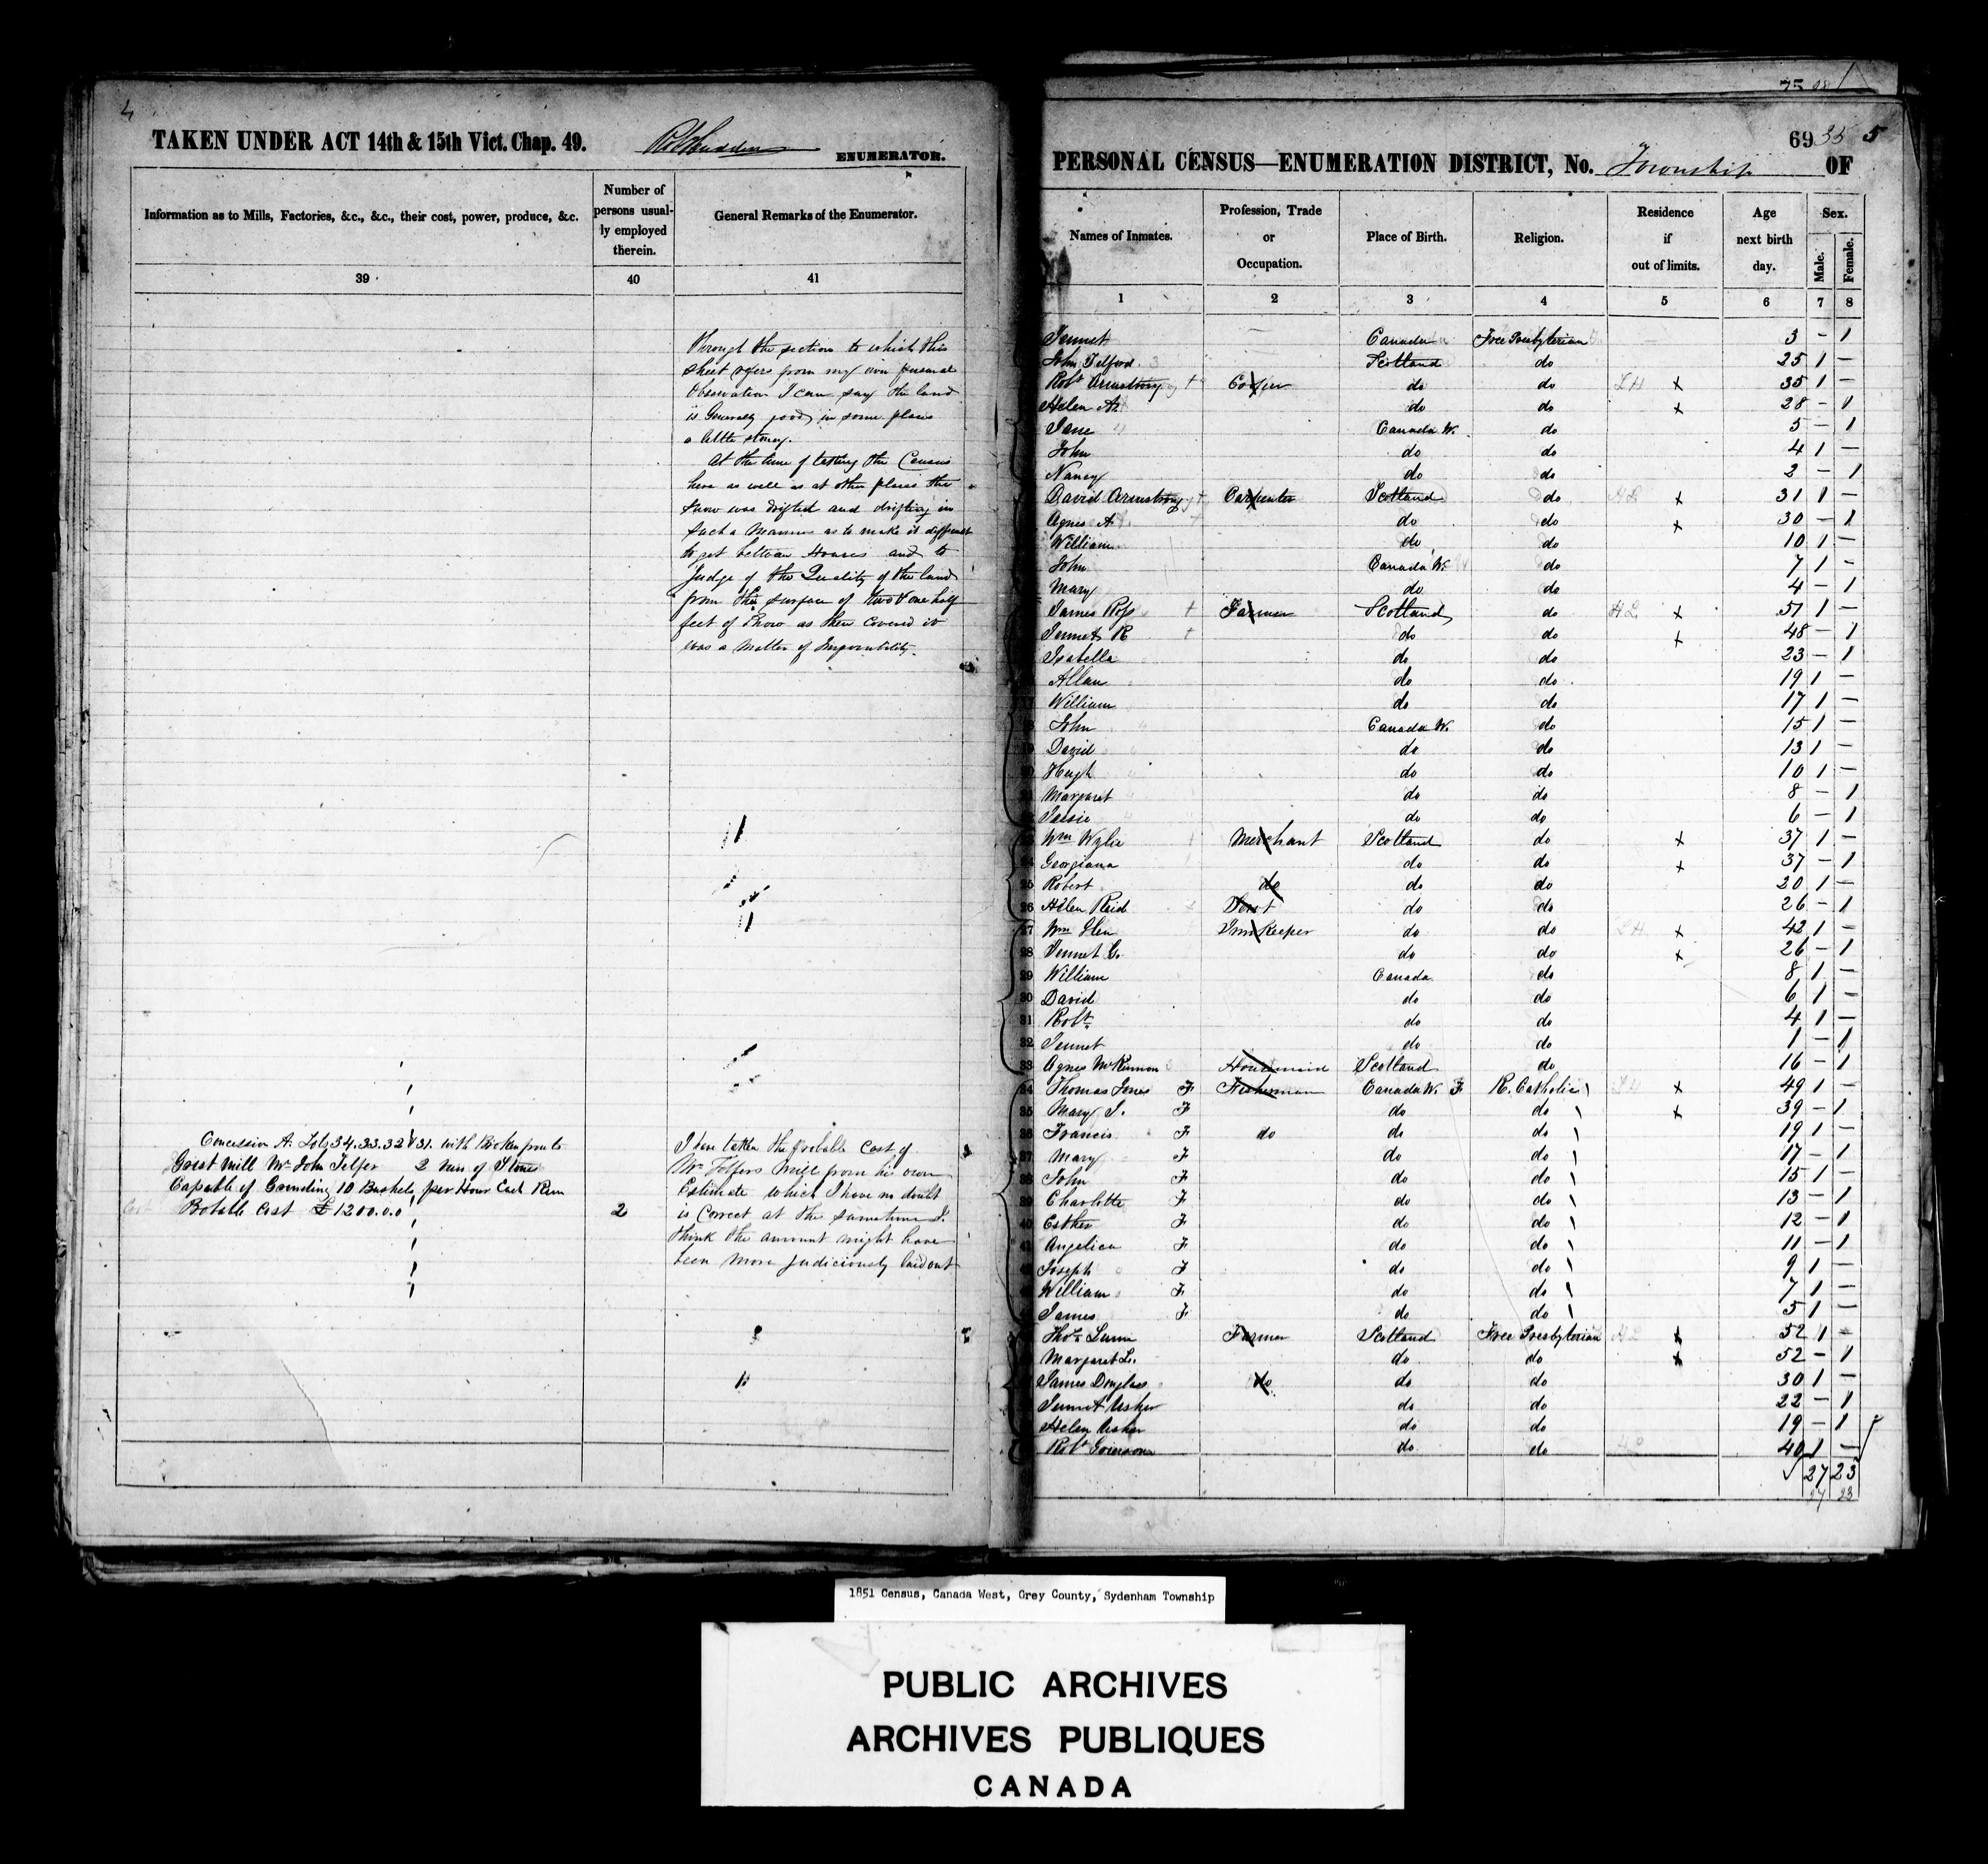 4
TAKEN UNDER ACT 14th & 15th Vict. Chap. 49.
ENUMERATOR.
Information as to Mills, Factories, &c., &c., their cost, power, produce, &c.
Number of persons usual-ly employed therein.
General Remarks of the Enumerator.
39
40
41
through the section to which this
sheet refers from my own personal
Observation I can say the land
is Generally good, in some places
a little stoney.
At the time of taking the Census
here as well as at other places the
Snow was drifted and drifting in
such a Manner as to make it difficult
to get between Houses and to
Judge of the Quality of the land
from the surface of two & one half
feet of Snow as then Covered it
was a Matter of Impossibility.
Concession A. Lots 34.33.32 & 31. with Broken fronts
Grist Mill Mr John Telfer 2 Run of Stones
Capable of Grinding 10 Bushels per Hour Each Run
Probable Cost £1200.0.0
2
I have taken the probable Cost of
Mr Telfers Mill from his own
Estimate which I have no doubt
is Correct at the sametime I
think the amount might have
been more Judiciously laid out
69 35 5
PERSONAL CENSUS—ENUMERATION DISTRICT, No. Township OF
Names of Inmates.
Profession, Trade or Occupation.
Place of Birth.
Religion.
Residence if out of limits.
Age next birth day.
Sex.
Male.
Female.
1 2 3 4 5 6 7 8
Jennet Canada Free Presbyterian 3 – 1
John Telford Scotland do 25 1 –
Robt Armstrong Cooper do do LH x 35 1 –
Helen A. do do x 28 – 1
Jane Canada W. do 5 – 1
John do do 4 1 –
Nancy do do 2 – 1
David Armstrong Carpenter Scotland do HL x 31 1 –
Agnes A. do do x 30 – 1
William do do 10 1 –
John Canada W. do 7 1 –
Mary do do 4 – 1
James Ross Farmer Scotland do HL x 51 1 –
Jennet R do do x 48 – 1
Isabella do do 23 – 1
Allan do do 19 1 –
William do do 17 1 –
John Canada W. do 15 1 –
David do do 13 1 –
Hugh do do 10 1 –
Margaret do do 8 – 1
Jessie do do 6 – 1
Wm Wylie Merchant Scotland do x 37 1 –
24 Georgiana do do x 37 – 1
25 Robert do do do 20 1 –
26 Hellen Reid Servt do do 26 – 1
27 Wm Glen Innkeeper do do LH x 42 1 –
28 Jennet G. do do x 26 – 1
29 William Canada do 8 1 –
30 David do do 6 1 –
31 Robt do do 4 1 –
32 Jennet do do 1 – 1
33 Agnes McKinnon Housemaid Scotland do 16 – 1
34 Thomas Jones F Fisherman Canada W. F R. Catholic x 49 1 –
35 Mary J. F do do x 39 – 1
36 Francis F do do do 19 1 –
37 Mary F do do 17 – 1
38 John F do do 15 1 –
39 Charlotte F do do 13 – 1
40 Esther F do do 12 – 1
41 Angelica F do do 11 – 1
Joseph F do do 9 1 –
William F do do 7 1 –
James F do do 5 1 –
Thos Lunn Farmer Scotland Free Presbyterian HL x 52 1 –
Margaret L. do do x 52 – 1
James Douglass do do do 30 1 –
Jennet Usher do do 22 – 1
Helen Usher do do 19 – 1
Robt Grierson do do 40 1 –
27 23
27 23
1851 Census, Canada West, Grey County, Sydenham Township
PUBLIC ARCHIVES
ARCHIVES PUBLIQUES
CANADA